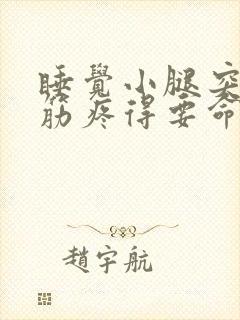 睡覺小腿突
筋疼得要命
趙宇航